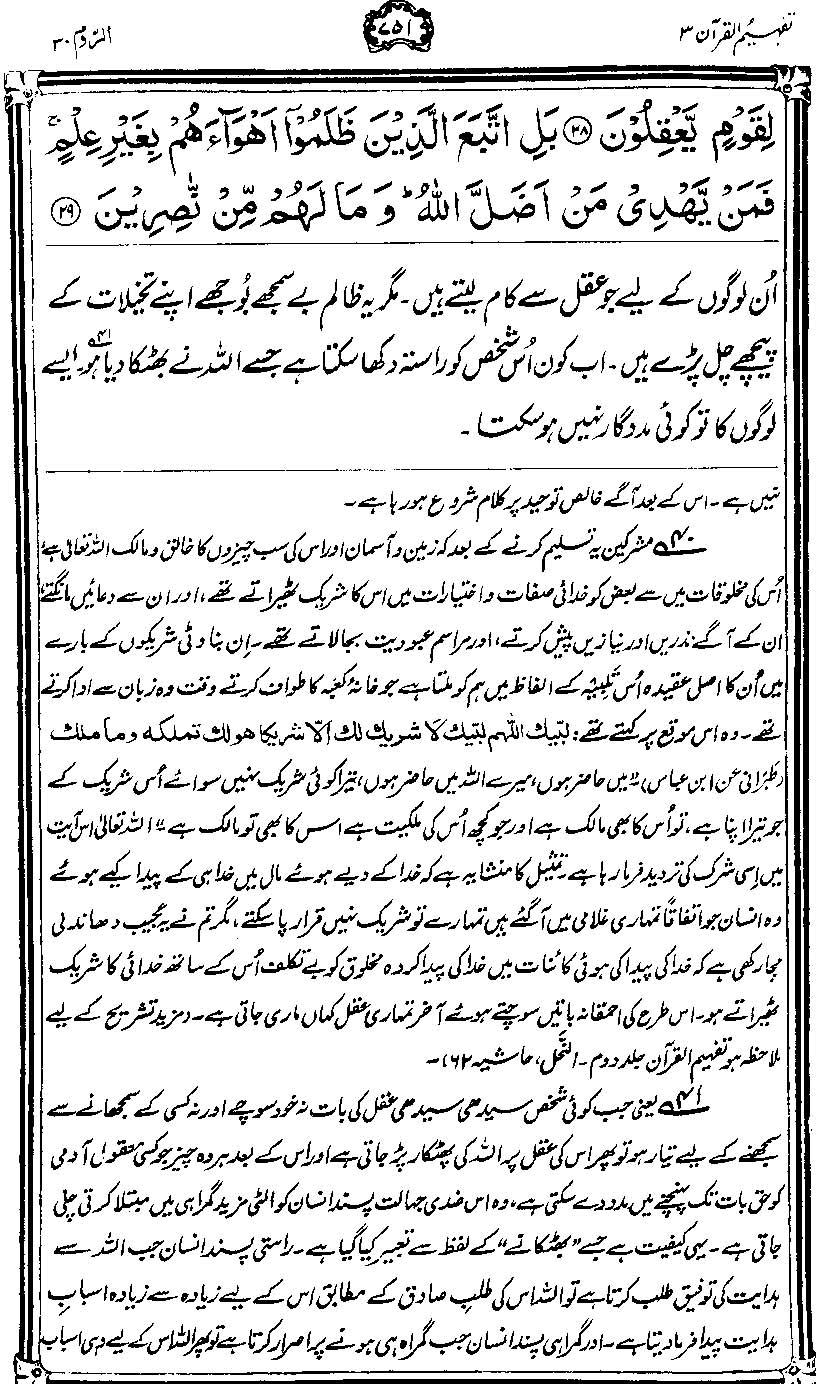 تفہیم القرآن ۳
۷۵۱
الرّوم ۳۰
لِقَوْمٍ يَّعْقِلُوْنَ ۲۸ بَلِ اتَّبَعَ الَّذِيْنَ ظَلَمُوْٓا اَهْوَآءَهُمْ بِغَيْرِ عِلْمٍ ۚ
فَمَنْ يَّهْدِيْ مَنْ اَضَلَّ اللّٰهُ ؕ وَمَا لَهُمْ مِّنْ نّٰصِرِيْنَ ۲۹
اُن لوگوں کے لیے جو عقل سے کام لیتے ہیں۔ مگر یہ ظالم بے سمجھے بُوجھے اپنے تخیلات کے
پیچھے چل پڑے ہیں۔ اب کون اُس شخص کو راستہ دکھا سکتا ہے جسے اللہ نے بھٹکا دیا ہو۴۱۔ ایسے
لوگوں کا تو کوئی مددگار نہیں ہو سکتا۔
نہیں ہے۔ اس کے بعد آگے خالص توحید پر کلام شروع ہو رہا ہے۔
۴۰؎ مشرکین یہ تسلیم کرنے کے بعد کہ زمین و آسمان اور اس کی سب چیزوں کا خالق و مالک اللہ تعالیٰ ہے،
اُس کی مخلوقات میں سے بعض کو خدائی صفات و اختیارات میں اس کا شریک ٹھیراتے تھے، اور ان سے دعائیں مانگتے،
ان کے آگے نذریں اور نیازیں پیش کرتے، اور مراسم عبودیت بجا لاتے تھے۔ اِن بناوٹی شریکوں کے بارے
میں اُن کا اصل عقیدہ اُس تَلبِیَہ کے الفاظ میں ہم کو ملتا ہے جو خانۂ کعبہ کا طواف کرتے وقت وہ زبان سے ادا کرتے
تھے۔ وہ اس موقع پر کہتے تھے: لبّيك اللهم لبّيك لا شريك لك الّا شريكا هو لك تملكه وما ملك
(طَبَرانی عن ابن عباس)۔ "میں حاضر ہوں، میرے اللہ میں حاضر ہوں، تیرا کوئی شریک نہیں سوائے اُس شریک کے
جو تیرا اپنا ہے، تو اُس کا بھی مالک ہے اور جو کچھ اُس کی ملکیت ہے اس کا بھی تو مالک ہے"۔ اللہ تعالیٰ اس آیت
میں اِسی شرک کی تردید فرما رہا ہے۔ تمثیل کا منشا یہ ہے کہ خدا کے دیے ہوئے مال میں خدا ہی کے پیدا کیے ہوئے
وہ انسان جو اتفاقاً تمہاری غلامی میں آ گئے ہیں تمہارے تو شریک نہیں قرار پا سکتے، مگر تم نے یہ عجیب دھاندلی
مچا رکھی ہے کہ خدا کی پیدا کی ہوئی کائنات میں خدا کی پیدا کردہ مخلوق کو بے تکلف اُس کے ساتھ خدائی کا شریک
ٹھیراتے ہو۔ اس طرح کی احمقانہ باتیں سوچتے ہوئے آخر تمہاری عقل کہاں ماری جاتی ہے۔ (مزید تشریح کے لیے
ملاحظہ ہو تفہیم القرآن جلد دوم۔ النَّحل، حاشیہ ۶۲)۔
۴۱؎ یعنی جب کوئی شخص سیدھی سیدھی عقل کی بات نہ خود سوچے اور نہ کسی کے سمجھانے سے
سمجھنے کے لیے تیار ہو تو پھر اس کی عقل پر اللہ کی پھٹکار پڑ جاتی ہے اور اس کے بعد ہر وہ چیز جو کسی معقول آدمی
کو حق بات تک پہنچنے میں مدد دے سکتی ہے، وہ اس ضدی جہالت پسند انسان کو الٹی مزید گمراہی میں مبتلا کرتی چلی
جاتی ہے۔ یہی کیفیت ہے جسے "بھٹکانے" کے لفظ سے تعبیر کیا گیا ہے۔ راستی پسند انسان جب اللہ سے
ہدایت کی توفیق طلب کرتا ہے تو اللہ اس کی طلبِ صادق کے مطابق اس کے لیے زیادہ سے زیادہ اسبابِ
ہدایت پیدا فرما دیتا ہے۔ اور گمراہی پسند انسان جب گمراہ ہی ہونے پر اصرار کرتا ہے تو پھر اللہ اس کے لیے وہی اسباب